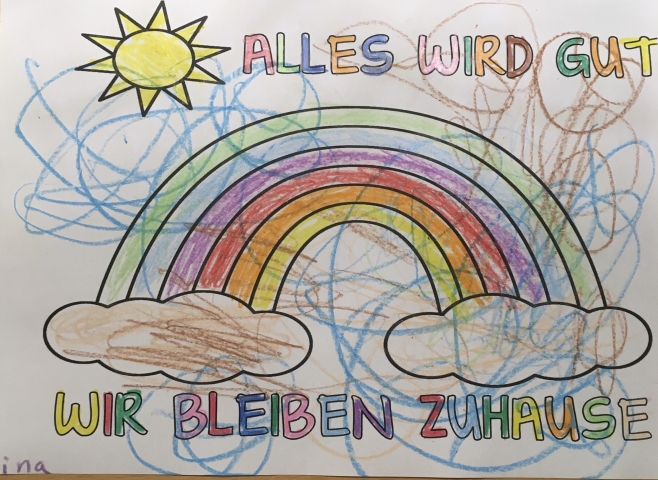 ALLES WIRD GUT
WIR BLEIBEN ZUHAUSE
ina